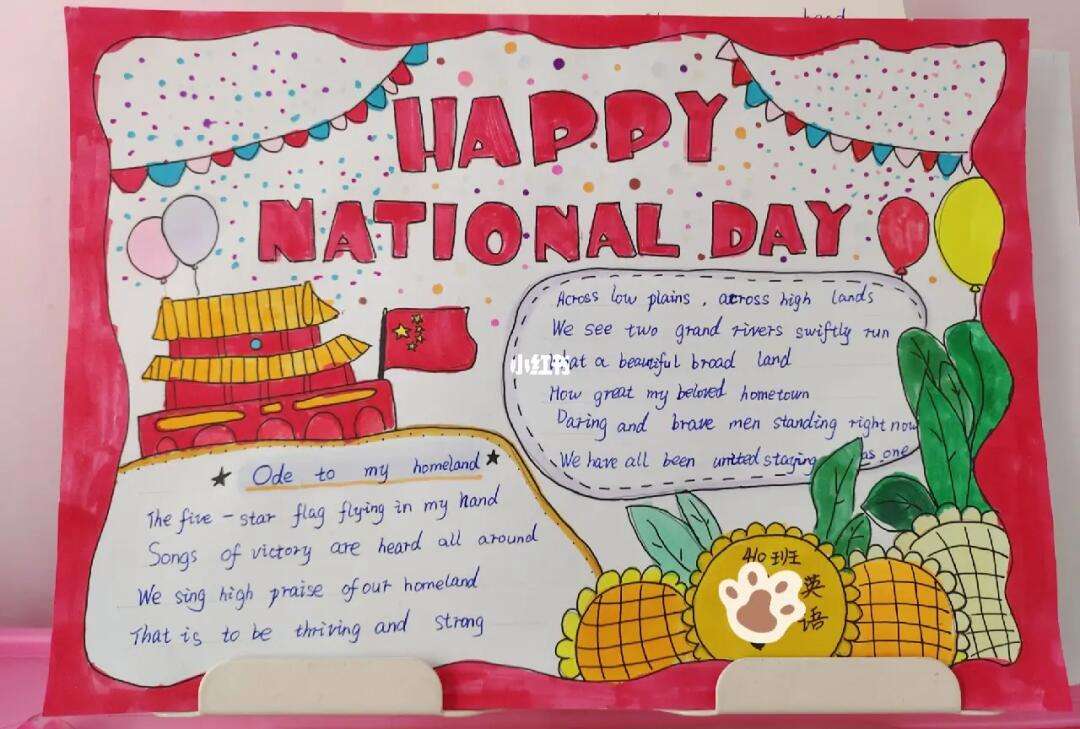 hand
HAPPY
NATIONAL DAY
Across low plains, across high lands
We see two grand rivers swiftly run
小红书
hat a beautiful broad land
How great my beloved hometown
Daring and brave men standing right now
We have all been united staying as one
Ode to my homeland
The five-star flag flying in my hand
Songs of victory are heard all around
We sing high praise of our homeland
That is to be thriving and strong
410班
英语